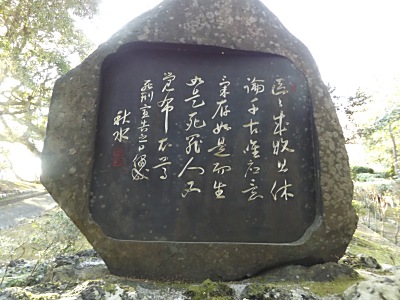 區々成敗且休
論千古唯応意
気存如是而生
如是死罪人又
覚布衣尊
死刑宣告之日偶成
秋水